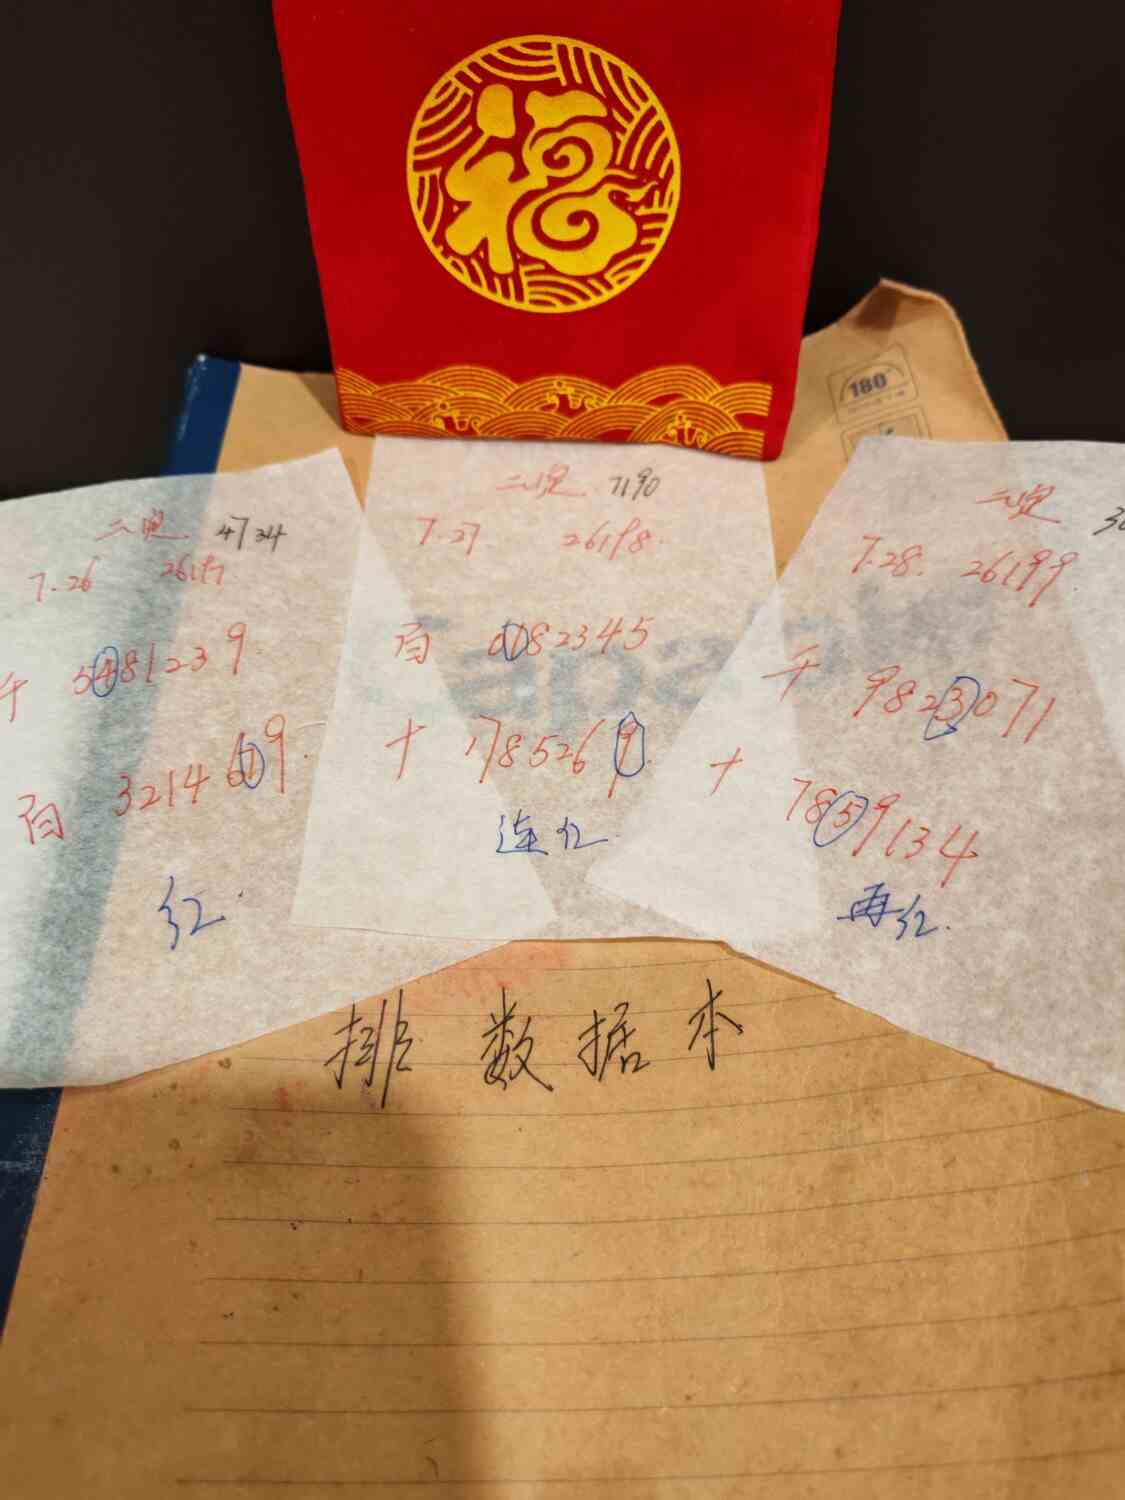 福
180°
二兜 4734
7.26 26197
千 5481239
百 3214619
红
二兜 7190
7.27 26198
百 0182345
十 1785269
连红
二兜
7.28 26199
千 9823071
十 7859134
再红
排 数 据 本